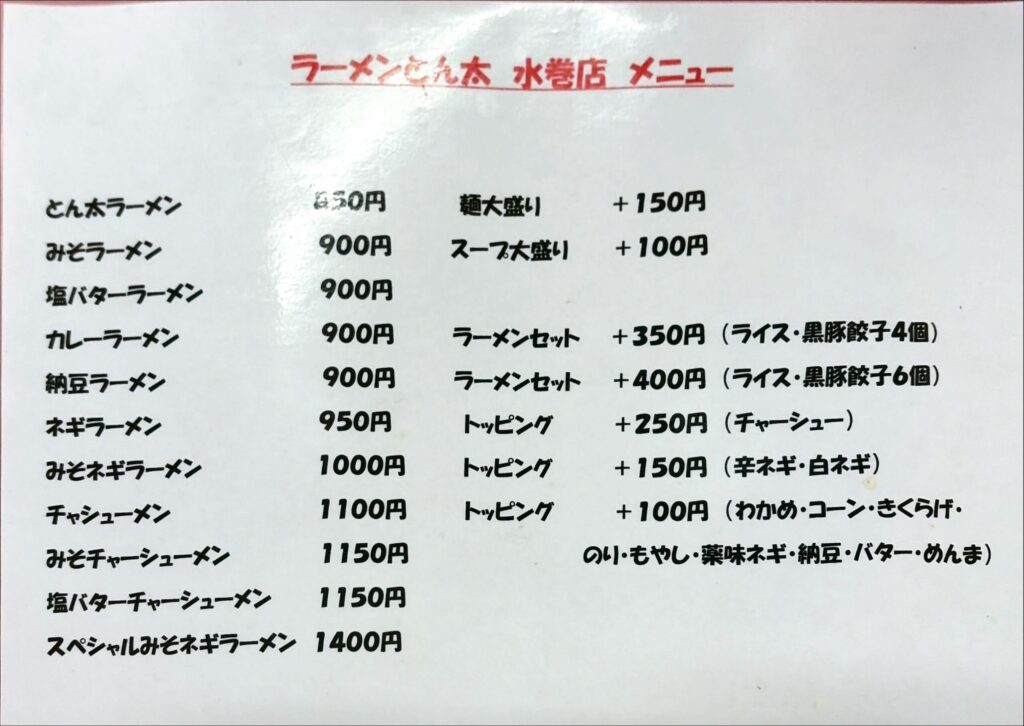 ラーメンとん太 水巻店 メニュー
とん太ラーメン 850円 麺大盛り +150円
みそラーメン 900円 スープ大盛り +100円
塩バターラーメン 900円
カレーラーメン 900円 ラーメンセット +350円 (ライス・黒豚餃子4個)
納豆ラーメン 900円 ラーメンセット +400円 (ライス・黒豚餃子6個)
ネギラーメン 950円 トッピング +250円 (チャーシュー)
みそネギラーメン 1000円 トッピング +150円 (辛ネギ・白ネギ)
チャシューメン 1100円 トッピング +100円 (わかめ・コーン・きくらげ・
みそチャーシューメン 1150円 のり・もやし・薬味ネギ・納豆・バター・めんま)
塩バターチャーシューメン 1150円
スペシャルみそネギラーメン 1400円